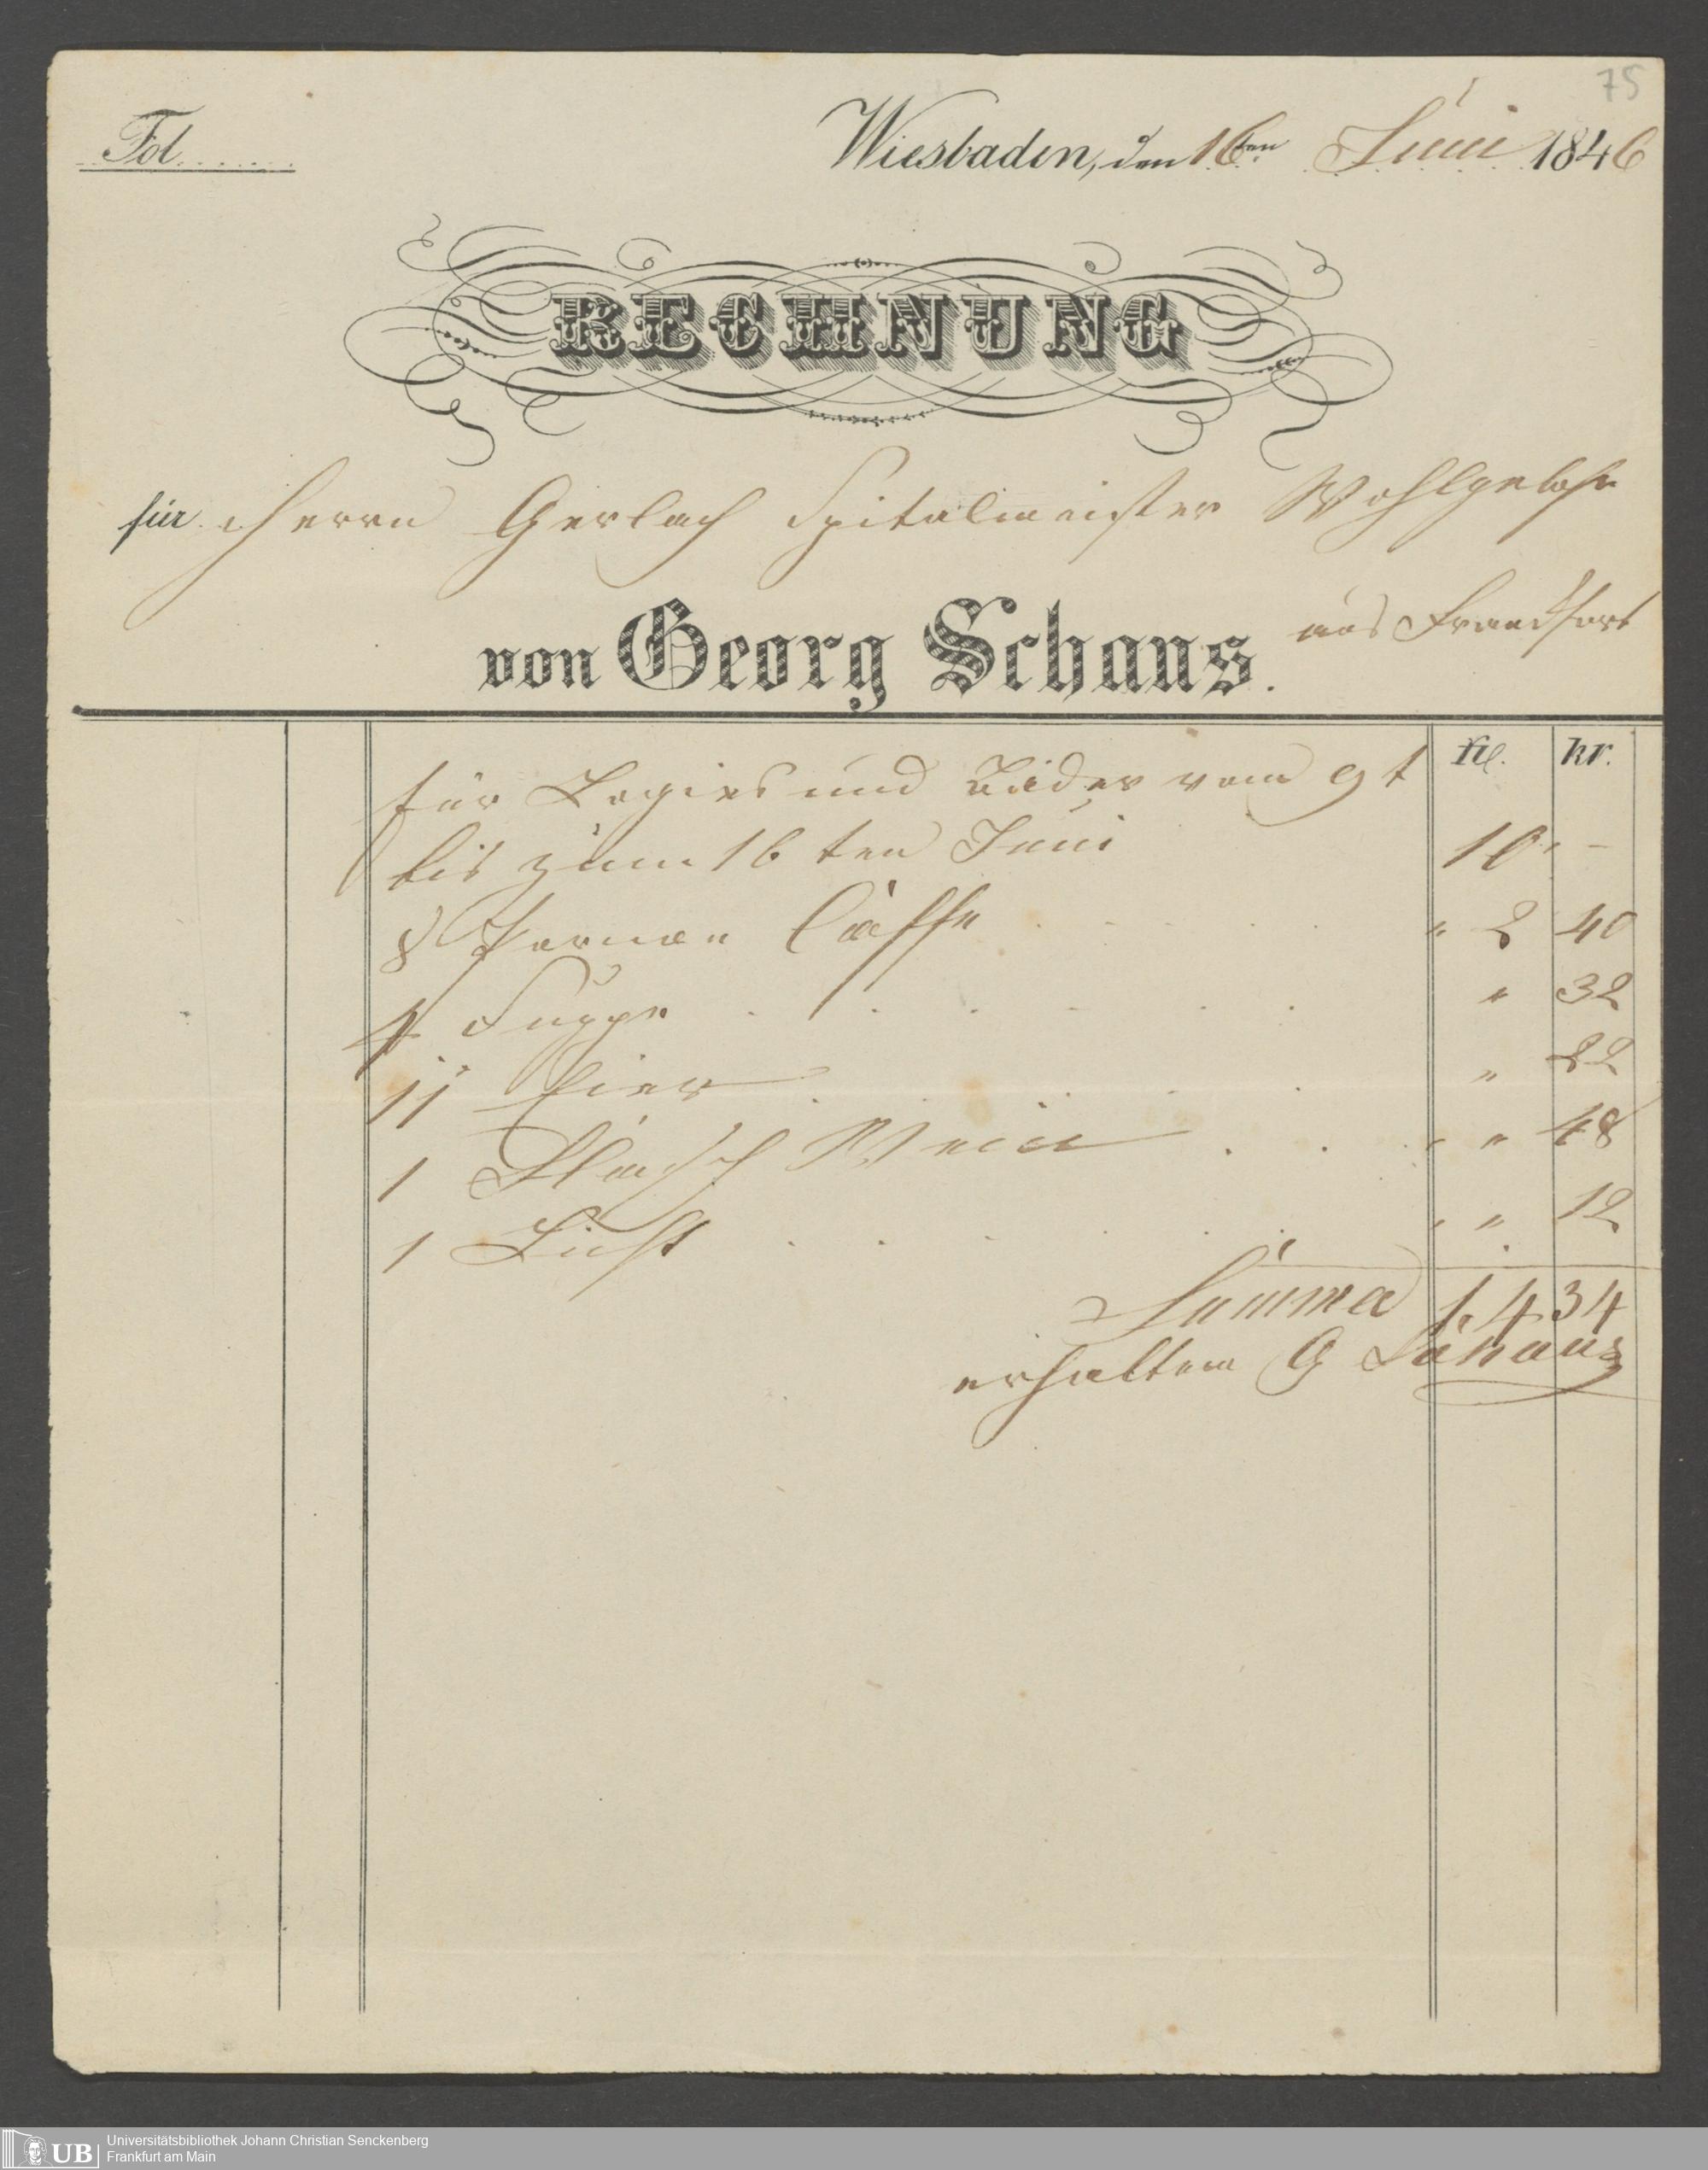 75
Fol.......
Wiesbaden, den 16ten Juni 1846
RECHNUNG
für Herrn Gerlach Spitalmeister Wohlgeboh
aus Franckfort
von Georg Schaus.
fl. kr.
für Logies und Bäder vom 9t
bis zum 16ten Juni 10 –
8 Porzion Caffe " 2 40
4 Suppe " 32
11 Eier " 22
1 Flasch Wein " " 48
1 Licht " " 12
Summa f. 14 34
erhalten G Schaus
UB Universitätsbibliothek Johann Christian Senckenberg
Frankfurt am Main